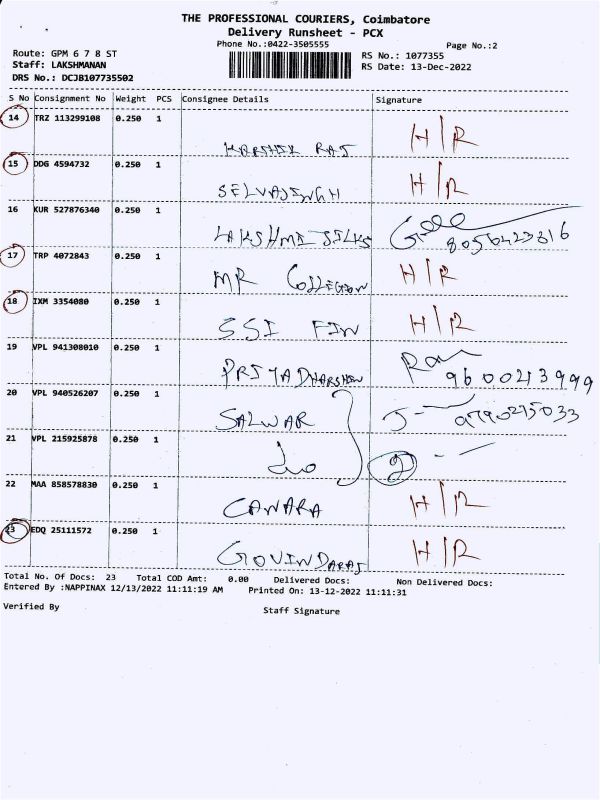 THE PROFESSIONAL COURIERS, Coimbatore
Delivery Runsheet - PCX
Phone No.:0422-3505555
Page No.:2
Route: GPM 6 7 8 ST
RS No.: 1077355
Staff: LAKSHMANAN
RS Date: 13-Dec-2022
DRS No.: DCJB107735502
S No Consignment No Weight PCS Consignee Details Signature
14 TRZ 113299108 0.250 1 HARSHIK RAJ H/R
15 DDG 4594732 0.250 1 SELVASINGH H/R
16 KUR 527876340 0.250 1 LAKSHMI SILKS 8056423316
17 TRP 4072843 0.250 1 MR COLLECTION H/R
18 IXM 3354080 0.250 1 SSI FIN H/R
19 VPL 941308010 0.250 1 PRIYADHARSHIN 9600213999
20 VPL 940526207 0.250 1 SALWAR 9790275033
21 VPL 215925878 0.250 1 2
22 MAA 858578830 0.250 1 CANARA H/R
23 EDQ 25111572 0.250 1 GOVINDARAJ H/R
Total No. Of Docs: 23 Total COD Amt: 0.00 Delivered Docs: Non Delivered Docs:
Entered By :NAPPINAX 12/13/2022 11:11:19 AM Printed On: 13-12-2022 11:11:31
Verified By Staff Signature